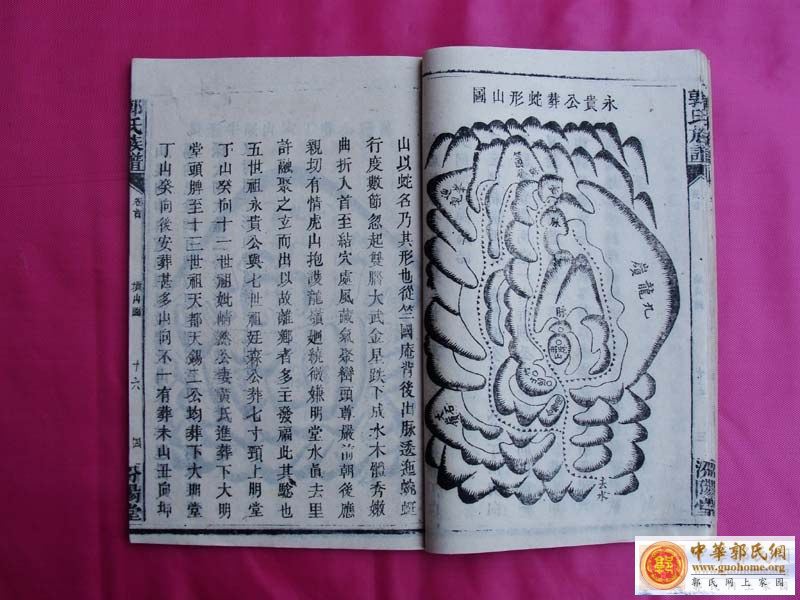 永貴公葬蛇形山圖
九龍嶺
去水
郭氏族譜
汾陽堂
山以蛇名乃其形也從竺國庵背後出脉透迤蜿蜒
行度數節忽起雙腦大武金星跌下成水木體秀嫩
曲折人首至結穴處風藏氣聚巒頭尊嚴前朝後應
親切有情虎山抱護龍嶺廻繞微嫌明堂水眞去里
許融聚之立而出以故離鄉者多主發福此其騐也
五世祖永貴公與七世祖廷森公葬七寸頸上明堂
丁山癸向十一世祖妣公妻黃氏進葬下大明
堂頭脾至十三世祖天都天錫二公均葬下大明堂
丁山癸向後安葬甚多山向不一有葬未山丑向坤
郭氏族譜
卷首
墳山圖
十六
汾陽堂
中華郭氏網
www.guohome.org
郭氏网上家园